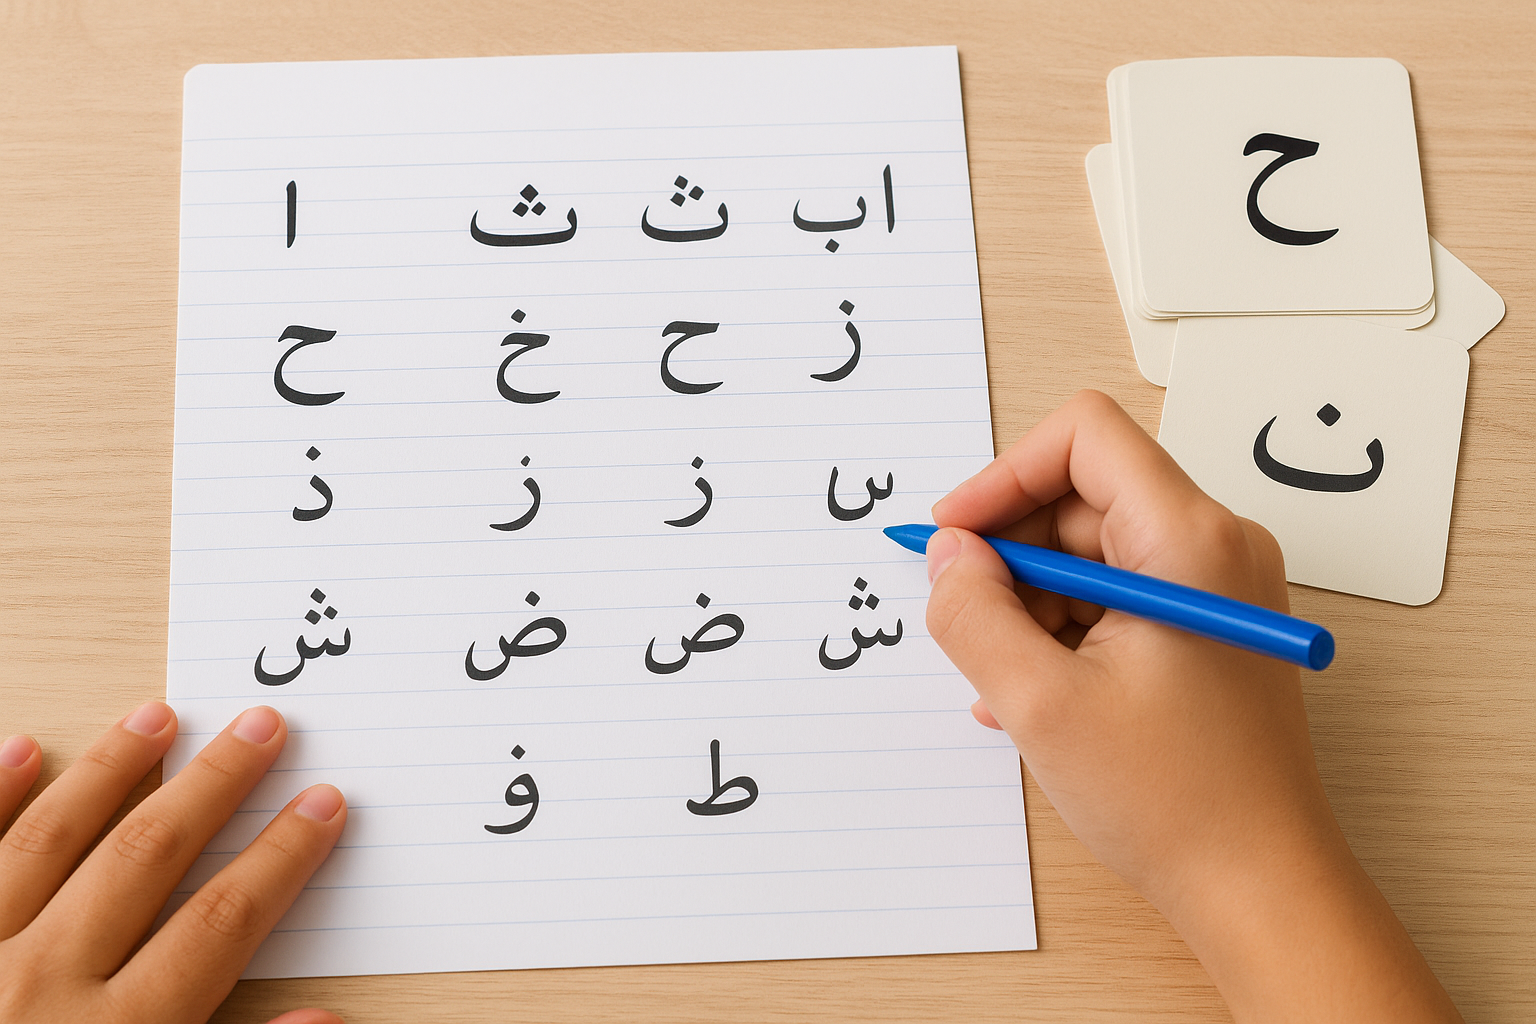 اب ث ث ا
ز ح خ ح
س ز ز ذ
ش ض ض ش
ط
ح
ن